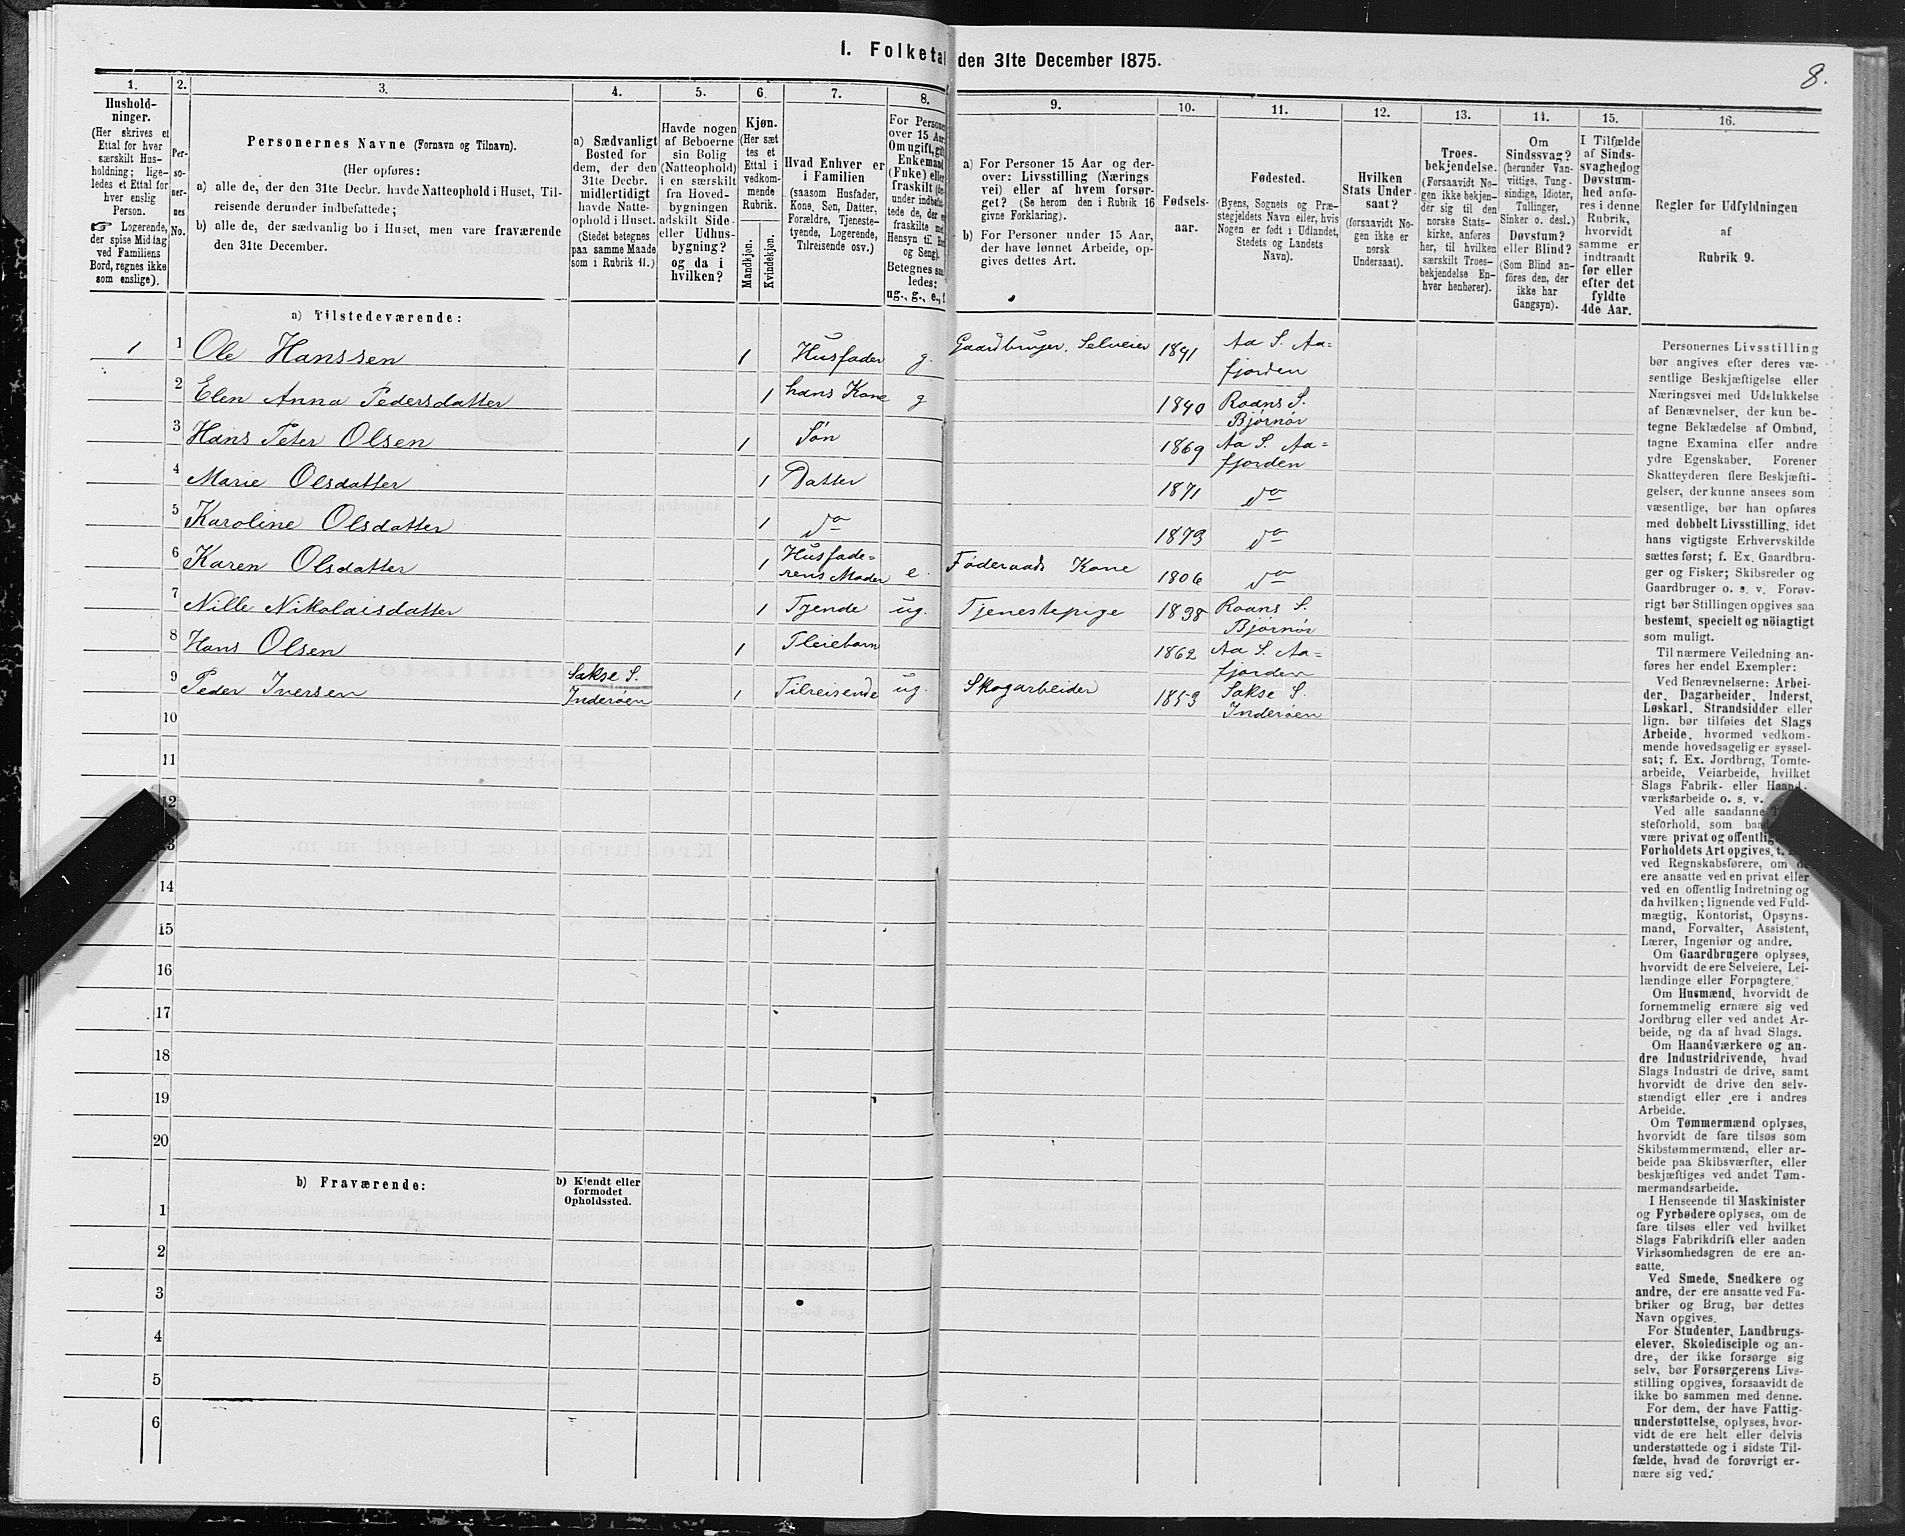 I. Folketal den 31te December 1875.
8.
1.
Hushold-
ninger.
(Her skrives et
Ettal for hver
særskilt Hus-
holdning; lige-
ledes et Ettal for
hver enslig
Person.
Logerende,
der spise Middag
ved Familiens
Bord, regnes ikke
som enslige).
2.
Per-
so-
ner-
nes
No.
3.
Personernes Navne (Fornavn og Tilnavn).
(Her opføres:
a) alle de, der den 31te Decbr. havde Natteophold i Huset, Til-
reisende derunder indbefattede;
b) alle de, der sædvanlig bo i Huset, men vare fraværende
den 31te December.
4.
a) Sædvanligt
Bosted for
dem, der den
31te Decbr.
midlertidigt
havde Natte-
ophold i Huset.
(Stedet betegnes
paa samme Maade
som i Rubrik 11.)
5.
Havde nogen
af Beboerne
sin Bolig
(Natteophold)
i en særskilt
fra Hoved-
bygningen
adskilt Side-
eller Udhus-
bygning?
og da i
hvilken?
6.
Kjøn.
(Her sæt
tes et
Ettal i
vedkom-
mende
Rubrik.
Mandkjøn.
Kvindekjøn.
7.
Hvad Enhver er
i Familien
(saasom Husfader,
Kone, Søn, Datter,
Forældre, Tjeneste-
tyende, Logerende,
Tilreisende osv.)
8.
For Personer
over 15 Aar
Om ugift, gift,
Enkemand
(Fuke) eller
fraskilt
under indbefat-
tede de, der
fraskilte med
Hensyn til
og Seng).
Betegnes saa
ledes:
ug., g., e.,
9.
a) For Personer 15 Aar og der-
over: Livsstilling (Nærings
vei) eller af hvem forsør-
get? (Se herom den i Rubrik 16
givne Forklaring).
b) For Personer under 15 Aar,
der have lønnet Arbeide, op-
gives dettes Art.
10.
Fødsels-
aar.
11.
Fødested.
(Byens, Sognets og Præ-
stegjeldets Navn eller, hvis
Nogen er født i Udlandet,
Stedets og Landets
Navn).
12.
Hvilken
Stats Under-
saat?
(forsaavidt No-
gen ikke er
norsk
Undersaat).
13.
Troes-
bekjendelse.
(Forsaavidt No-
gen ikke bekjen-
der sig til den
norske Stats-
kirke, anføres
her, til hvilken
særskilt Troes-
bekjendelse En-
hver henhører).
14.
Om
Sindssvag?
(herunder Van-
vittige, Tung-
sindige, Idioter,
Tullinger,
Sinker o. desl.)
Døvstum?
eller Blind?
(Som Blind an-
føres den, der
ikke har
Gangsyn).
15.
I Tilfælde
af Sinds-
svaghed og
Døvstum-
hed anfø-
res i denne
Rubrik,
hvorvidt
samme er
indtraadt
før eller
efter det
fyldte
4de Aar.
16.
Regler for Udfyldningen
af
Rubrik 9.
a) Tilstedeværende:
1 1 Ole Hanssen 1 Husfader g. Gaardbruger. Selveier 1841 Aa S. Aa=
fjorden
2 Elen Anna Pedersdatter 1 hans Kone g 1840 Roans S.
Bjørnør
3 Hans Peter Olsen 1 Søn 1869 Aa S. Aa=
fjorden
4 Marie Olsdatter 1 Datter 1871 do
5 Karoline Olsdatter 1 do 1873 do
6 Karen Olsdatter 1 Husfade=
rens Moder e. Føderaads Kone 1806 do
7 Nille Nikolaisdatter 1 Tyende ug. Tjenestepige 1838 Roans S.
Bjørnør
8 Hans Olsen 1 Pleiebarn 1862 Aa S. Aa=
fjorden
9 Peder Iversen Sakse S.
Inderøen 1 Tilreisende ug. Skogarbeider 1853 Sakse S.
Inderøen
10
11
12
13
14
15
16
17
18
19
20
b) Fraværende:
b) Kjendt eller
formodet
Opholdssted.
1
2
3
4
5
6
Personernes Livsstilling
bør angives efter deres væ-
sentlige Beskjæftigelse eller
Næringsvei med Udelukkelse
af Benævnelser, der kun be-
tegne Beklædelse af Ombud,
tagne Examina eller andre
ydre Egenskaber. Forener
Skatteyderen flere Beskjæfti-
gelser, der kunne ansees som
væsentlige, bør han opføres
med dobbelt Livsstilling, idet
hans vigtigste Erhvervskilde
sættes først; f. Ex. Gaardbru-
ger og Fisker; Skibsreder og
Gaardbruger o. s. v. Forøv-
rigt bør Stillingen opgives saa
bestemt, specielt og nöiagtigt
som muligt.
Til nærmere Veiledning an-
føres her endel Exempler:
Ved Benævnelserne: Arbei-
der, Dagarbeider, Inderst,
Løskarl, Strandsidder eller
lign. bør tilføies det Slags
Arbeide, hvormed vedkom-
mende hovedsagelig er syssel-
sat; f. Ex. Jordbrug, Tomte-
arbeide, Veiarbeide, hvilket
Slags Fabrik- eller Haand-
værksarbeide o. s. v.
Ved alle saadanne
steforhold, som
være privat og offentlig
Forholdets Art opgives,
ved Regnskabsførere, om de
ere ansatte ved en privat eller
ved en offentlig Indretning og
da hvilken; lignende ved Fuld-
mægtig, Kontorist, Opsyns-
mand, Forvalter, Assistent,
Lærer, Ingeniør og andre.
Om Gaardbrugere oplyses,
hvorvidt de ere Selveiere, Lei-
lændinge eller Forpagtere.
Om Husmænd, hvorvidt de
fornemmelig ernære sig ved
Jordbrug eller ved andet Ar-
beide, og da af hvad Slags.
Om Haandværkere og an-
dre Industridrivende, hvad
Slags Industri de drive, samt
hvorvidt de drive den selv-
stændigt eller ere i andres
Arbeide.
Om Tømmermænd oplyses,
hvorvidt de fare tilsøs som
Skibstømmermænd, eller ar-
beide paa Skibsværfter, eller
beskjæftiges ved andet Tøm-
mermandsarbeide.
I Henseende til Maskinister
og Fyrbødere oplyses, om de
fare tilsøs eller ved hvilket
Slags Fabrikdrift eller anden
Virksomhedsgren de ere an-
satte.
Ved Smede, Snedkere og
andre, der ere ansatte ved Fa-
briker og Brug, bør dettes
Navn opgives.
For Studenter, Landbrugs-
elever, Skoledisciple og an-
dre, der ikke forsørge sig
selv, bør Forsørgerens Livs-
stilling opgives, forsaavidt de
ikke bo sammen med denne.
For dem, der have Fattig-
understøttelse, oplyses, hvor-
vidt de ere helt eller delvis
understøttede og i sidste Til-
fælde, hvad de forøvrigt er-
nære sig ved.